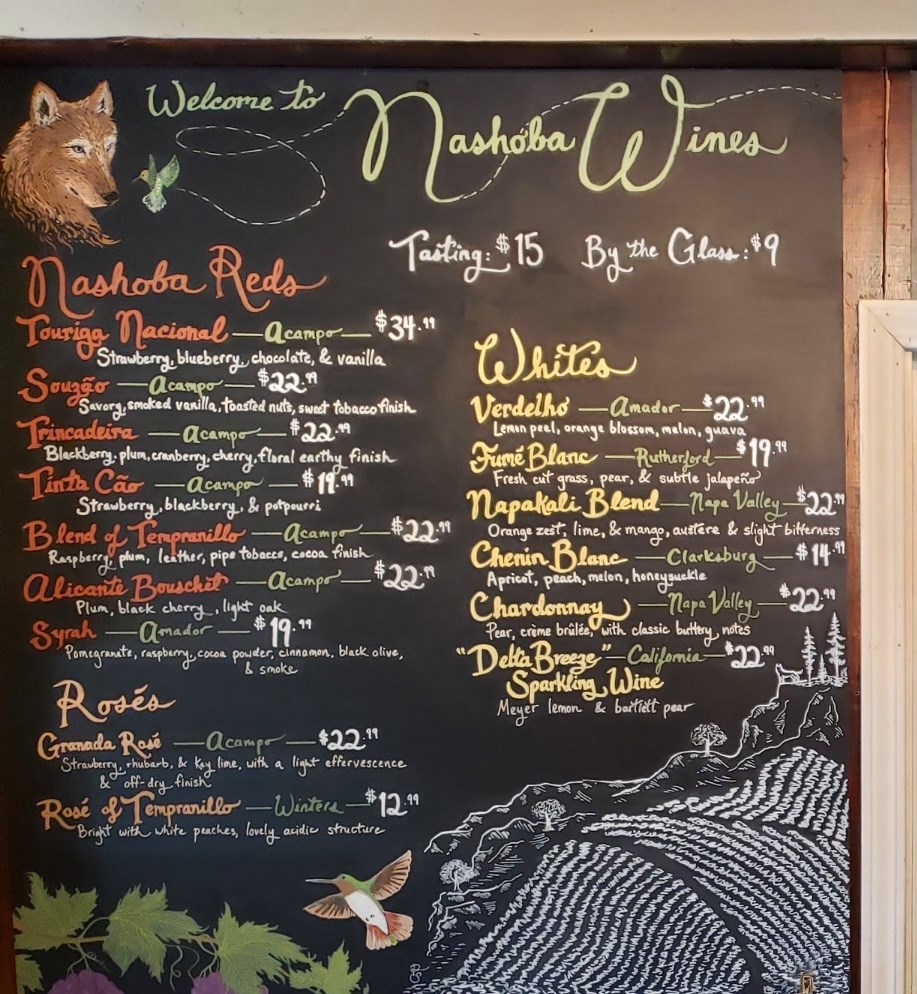 Welcome to Nashoba Wines
Tasting: $15 By the Glass: $9
Nashoba Reds
Touriga Nacional — Acampo — $34.99
Strawberry, blueberry, chocolate, & vanilla
Souzão — Acampo — $22.99
Savory, smoked vanilla, toasted nuts, sweet tobacco finish
Trincadeira — Acampo — $22.99
Blackberry, plum, cranberry, cherry, floral earthy finish
Tinta Cão — Acampo — $19.99
Strawberry, blackberry, & potpourri
Blend of Tempranillo — Acampo — $22.99
Raspberry, plum, leather, pipe tobacco, cocoa finish
Alicante Bouschet — Acampo — $22.99
Plum, black cherry, light oak
Syrah — Amador — $19.99
Pomegranate, raspberry, cocoa powder, cinnamon, black olive,
& smoke
Rosés
Granada Rosé — Acampo — $22.99
Strawberry, rhubarb, & key lime, with a light effervescence
& off-dry finish
Rosé of Tempranillo — Winters — $12.99
Bright with white peaches, lovely acidic structure
Whites
Verdelho — Amador — $22.99
Lemon peel, orange blossom, melon, guava
Fumé Blanc — Rutherford — $19.99
Fresh cut grass, pear, & subtle jalapeño
Napakali Blend — Napa Valley — $22.99
Orange zest, lime, & mango, austere & slight bitterness
Chenin Blanc — Clarksburg — $14.99
Apricot, peach, melon, honeysuckle
Chardonnay — Napa Valley — $22.99
Pear, crème brûlée, with classic buttery notes
"Delta Breeze" — California — $22.99
Sparkling Wine
Meyer lemon & bartlett pear